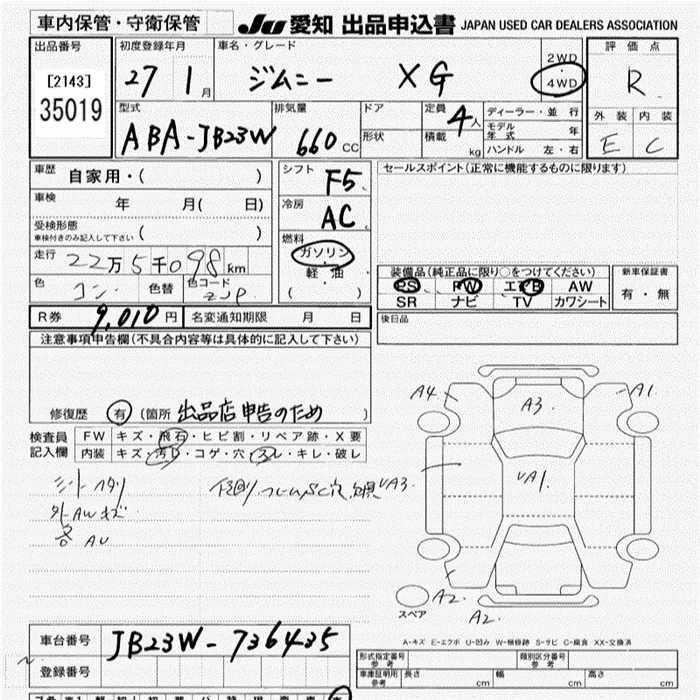 車内保管・守衛保管 JU 愛知 出品申込書 JAPAN USED CAR DEALERS ASSOCIATION
出品番号 初度登録年月 車名・グレード 評価点
[2143]
35019
27 1月 ジムニー XG 2WD・4WD R
型式 排気量 ドア 定員 ディーラー・並行 外装 内装
ABA-JB23W 660cc 形状 4人 積載 kg モデル年式 年 E C
ハンドル 左・右
車歴 自家用・( ) シフト F5 セールスポイント(正常に機能するものに限ります)
車検 年 月( 日) 冷房 AC
受検形態
車検付きのみ記入して下さい ( ) 燃料
走行 22万5千098km ガソリン・軽油 ( )
装備品(純正品に限り○をつけてください) 新車保証書
色 色替 色コード PS PW エアB AW 有・無
ZJP SR ナビ TV カワシート
R券 9,010円 名変通知期限 月 日 後日品
注意事項申告欄(不具合内容等は具体的に記入して下さい)
修復歴 有 (箇所 出品店申告のため )
検査員記入欄 FW キズ・飛石・ヒビ割・リペア跡・X要
内装 キズ・汚レ・コゲ・穴・スレ・キレ・破レ
シートヘタリ
外AWキズ
各AU
A4 A3 A1
UA3 UA1
A2 A2
スペア
A-キズ E-エクボ U-凹み W-補修跡 S-サビ C-腐食 XX-交換済
車台番号 JB23W-736435
登録番号
形式指定番号 参考 類別区分番号 参考
車庫証明用 参考 長さ cm 幅 cm 高さ cm